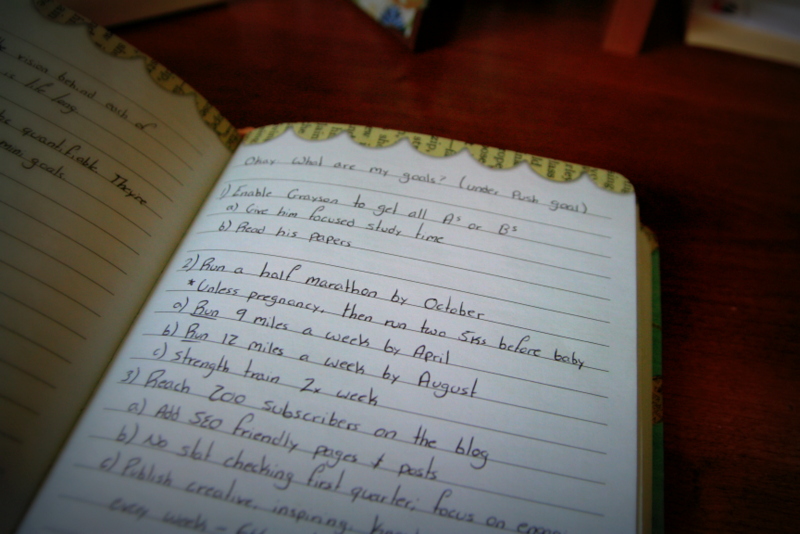 vision behind each of
life long
quantifiable. They're
goals
Okay What are my goals? (under Push goal)
1) Enable Grayson to get all A's or B's
a) Give him focused study time
b) Read his papers
2) Run a half marathon by October
*Unless pregnancy, then run two 5ks before baby
a) Run 9 miles a week by April
b) Run 12 miles a week by August
c) Strength train 2x week
3) Reach 200 subscribers on the blog
a) Add SEO friendly pages & posts
b) No stat checking first quarter; focus on
c) Publish creative, inspiring,
every week -